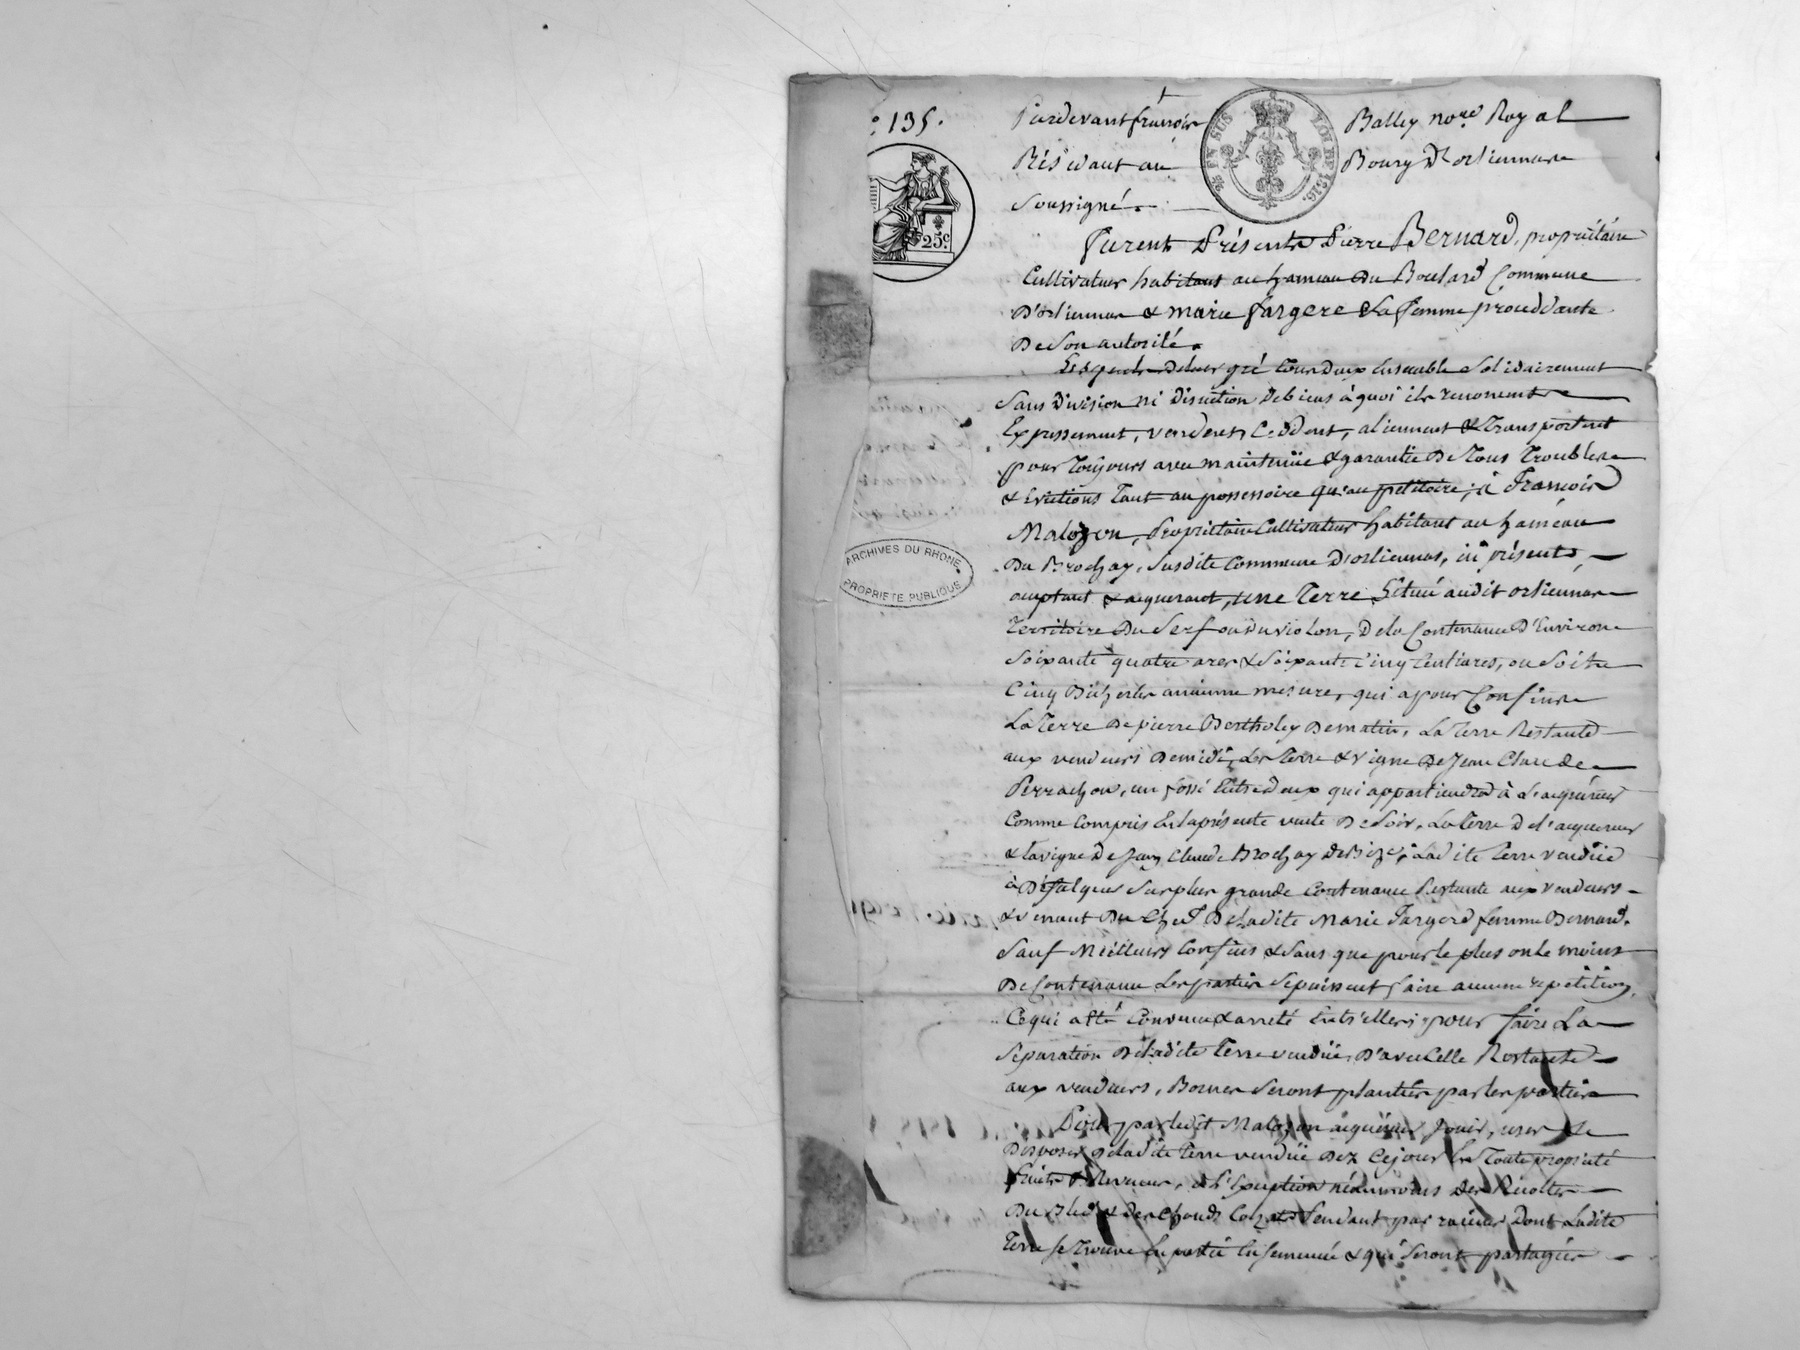 135.
EN SUS LOI DE 1816.
25c
Pardevant françois Balley nore Royal
Résidant au Bourg D'orliennas
Soussigné.
furent Présents Pierre Bernard, propriétaire
Cultivateur habitant au hameau du Boulard Commune
D'orliennas & marie fargere Sa femme procédante
De Son autorité.
Lesquels de leur gré tous deux Ensemble Solidairement
Sans Division ni Discution De biens à quoi ils renoncent
Expressement, vendent, Ceddent, alienent & Transportent
pour Toujours avec maintenüe & garantie De Tous Troubles
& Evictions Tant au possessoire qu'au petitoire; à François
Malozon, Propriétaire Cultivateur habitant au hameau
Du Brochay, Susdite Commune D'orliennas, ici présent
acceptant & acquerant, une Terre Située audit orliennas
Territoire Du Serf ou Du violon, De la Contenance D'Environ
Soixante quatre ares & Soixante Cinq Centiares, ou Soit
Cinq Bicherées ancienne mesure, qui a pour Confins
La Terre De pierre Bertholey De matin, La Terre Restante
aux vendeurs De midi, Les Terre & vigne De Jean Claude
Perrachon, un fossé Entredeux qui appartiendra à L'acquéreur
Comme Compris En la présente vente De Soir, La Terre De l'acquereur
& la vigne De Jean Claude Brochay De Bize; Ladite Terre vendüe
à Défalquer Sur plus grande Contenance Restante aux vendeurs
& venant Du Chef De Ladite Marie Fargere femme Bernard.
Sauf Meilleurs Confins & Sans que pour le plus ou le moins
De Contenance Les parties Se puissent faire aucune repétition,
Ce qui a été Convenu & arreté Entr'elles; pour faire La
Séparation De Ladite Terre vendüe, D'avec Celle Restante
aux vendeurs, Bornes Seront plantées par les parties
Pour par ledit Malozon acquéreur Jouir, user &
Disposer De Ladite Terre vendüe Dez Ce jour En Toute propriété
fruits & Revenus, à L'Exception néanmoins Des Récoltes
Du Bled & Des Choux Colzats Pendant par racines Dont Ladite
Terre Se Trouve En partie Ensemencée & qui Seront partagées
ARCHIVES DU RHONE
PROPRIETE PUBLIQUE